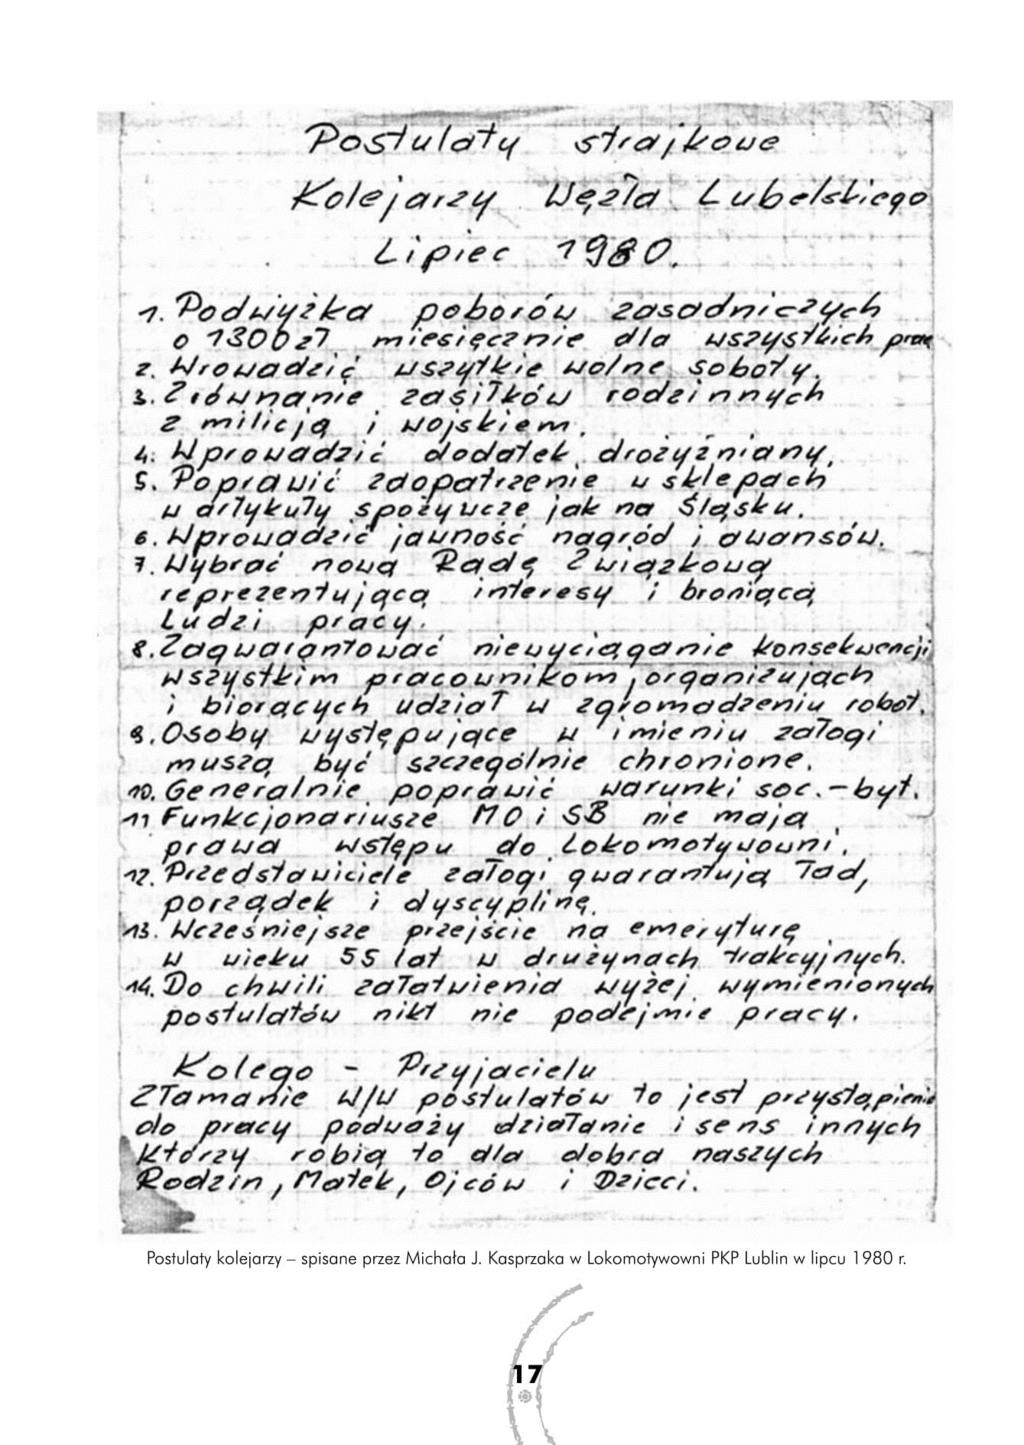 Postulaty strajkowe
Kolejarzy Węzła Lubelskiego
Lipiec 1980.
1. Podwyżka poborów zasadniczych
o 1300 zł miesięcznie dla wszystkich prac
2. Wrowadzić wszytkie wolne soboty.
3. Zrównanie zasiłków rodzinnych
z milicją i wojskiem.
4. Wprowadzić dodatek drożyźniany.
5. Poprawić zdopatrzenie w sklepach
w artykuły spożywcze jak na Śląsku.
6. Wprowadzić jawność nagród i awansów.
7. Wybrać nową Radę Związkową
reprezentującą interesy i broniącą
Ludzi pracy.
8. Zagwarantować niewyciąganie konsekwencji
wszystkim pracownikom, organizująch
i biorących udział w zgromadzeniu robot.
9. Osoby występujące w imieniu załogi
muszą być szczególnie chronione.
10. Generalnie poprawić warunki soc.-byt.
11 Funkcjonariusze MO i SB nie mają
prawa wstępu do Lokomotywowni.
12. Przedstawiciele załogi gwarantują ład,
porządek i dyscyplinę.
13. Wcześniejsze przejście na emeryturę
w wieku 55 lat w drużynach trakcyjnych.
14. Do chwili załatwienia wyżej wymienionych
postulatów nikt nie podejmie pracy.
Kolego - Przyjacielu
Złamanie w/w postulatów to jest przystąpienie
do pracy podważy działanie i sens innych
którzy robią to dla dobra naszych
Rodzin, Matek, Ojców i Dzieci.
Postulaty kolejarzy – spisane przez Michała J. Kasprzaka w Lokomotywowni PKP Lublin w lipcu 1980 r.
17